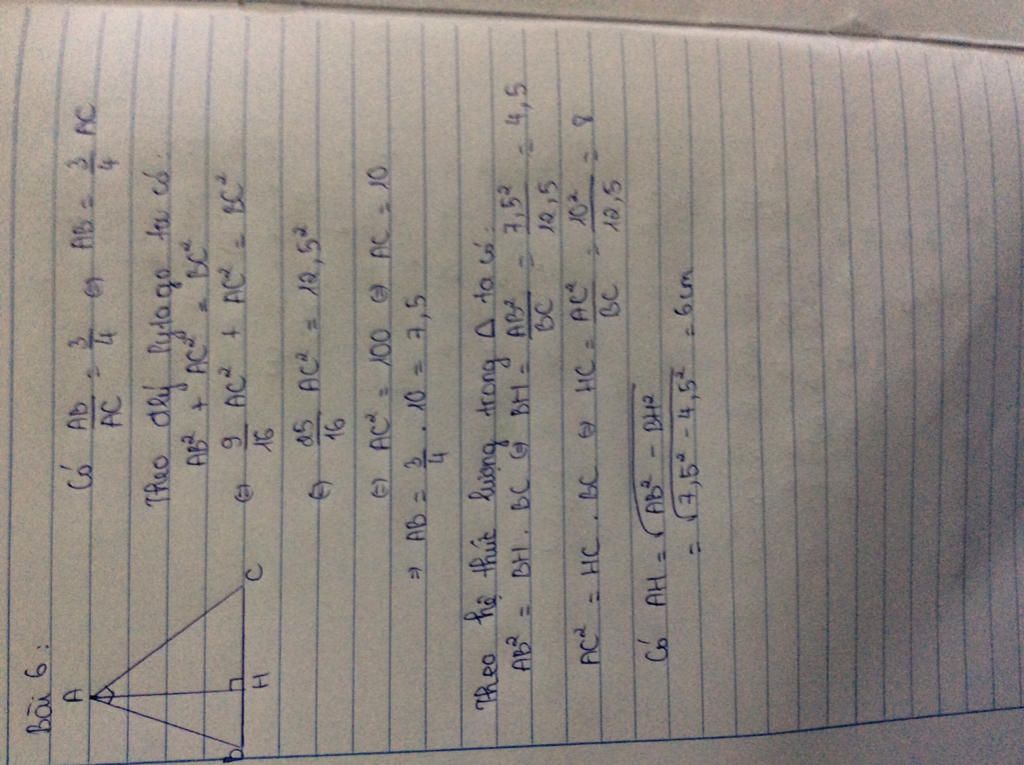 Bài 6 :
A
B
H
C
Có AB/AC = 3/4 ⇔ AB = 3/4 AC
Theo đlý Pytago ta có:
AB² + AC² = BC²
⇔ 9/16 AC² + AC² = BC²
⇔ 25/16 AC² = 12,5²
⇔ AC² = 100 ⇔ AC = 10
⇒ AB = 3/4 . 10 = 7,5
Theo hệ thức lượng trong Δ ta có:
AB² = BH . BC ⇔ BH = AB²/BC = 7,5²/12,5 = 4,5
AC² = HC . BC ⇔ HC = AC²/BC = 10²/12,5 = 8
Có AH = √(AB² - BH²)
= √(7,5² - 4,5²) = 6cm